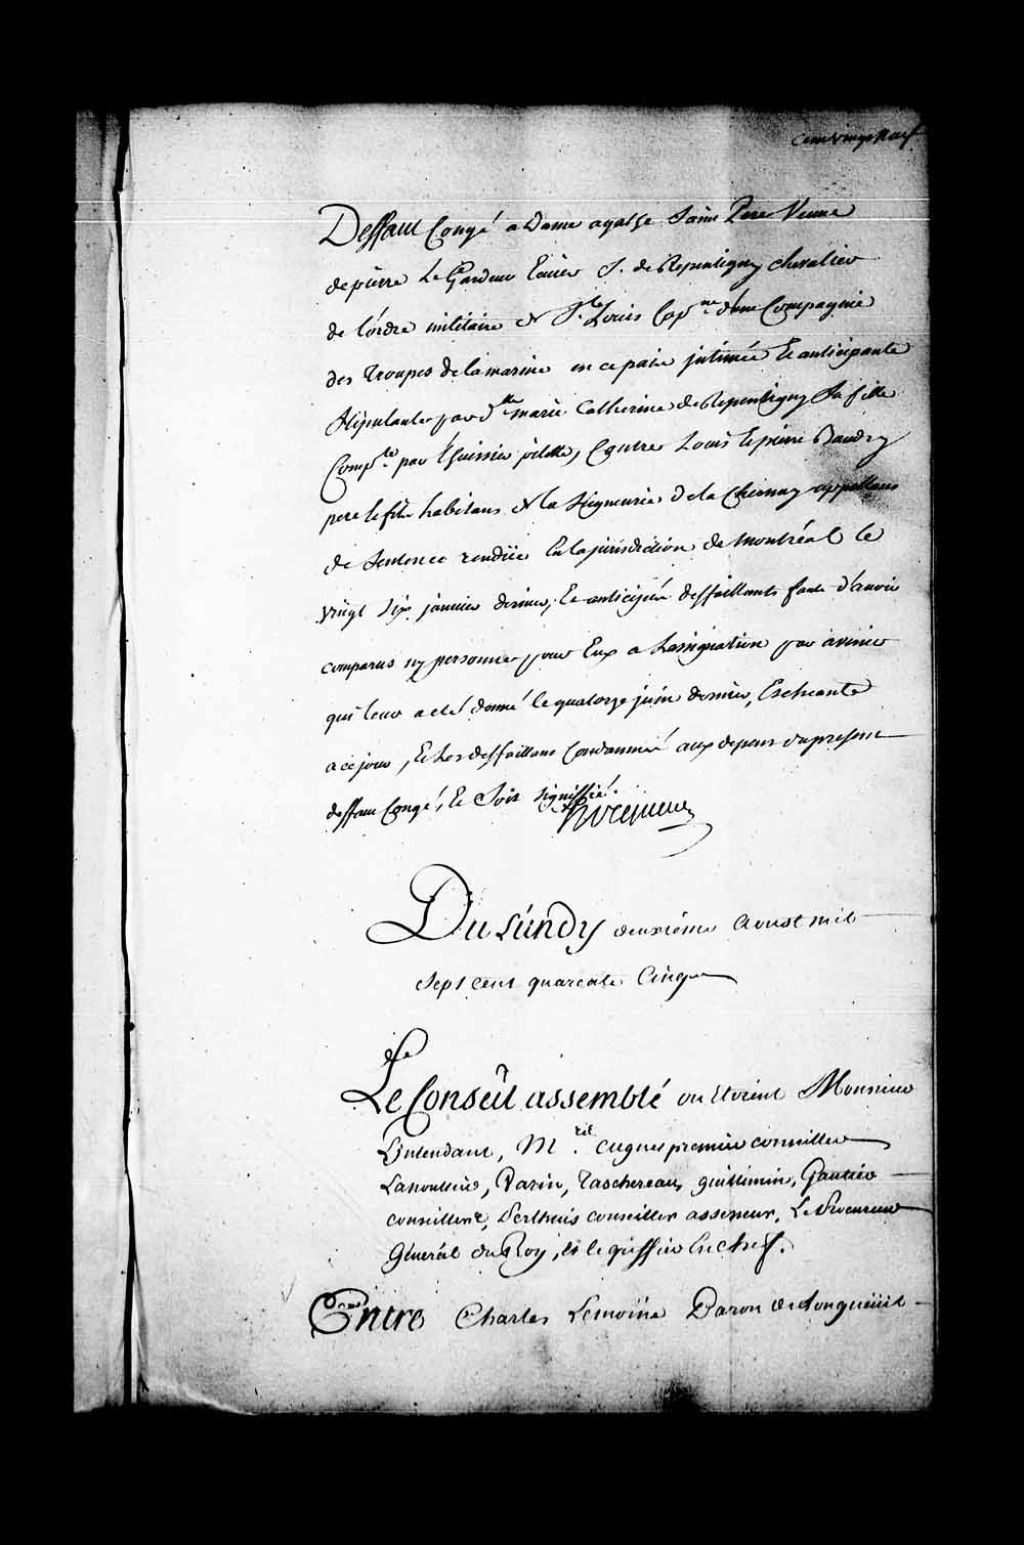 Cent vingt Neuf
Deffaut Congé a Dame agathe Saint Pere Veuve
de pierre Le Gardeur Ecuier S. de Repentigny chevalier
de l'ordre militaire de St. Louis Cap.ne d'une Compagnie
des Troupes de la marine en ce païs intimée et anticipante
Stipulante par d.lle marie Catherine de Repentigny Sa fille
Comp.te par l'huissier Contre Louis et pierre Baudry
pere et fils habitans de la Seigneurie de la Chernay appellans
de Sentence rendüe En la jurisdiction de Montréal le
vingt Six janvier dernier, Et anticipés deffaillants faute d'avoir
comparus ny personne pour Eux a Lassignation
qui leur a eté donné le quatorze juin dernier, Escheante
a ce jour, Et Les deffaillans Condamnés aux depens du present
deffaut Congé, Et Soit Signiffié.
hocquart
Du Lundy deuxiéme Aoust mil
Sept cent quarente Cinq
Le Conseil assemblé ou Etoient Monsieur
L'Intendant, M. Cugnet premier conseiller
Lanoullier, Varin, Taschereau, guillimin, Gautier
conseillers, Berthuis conseiller assesseur, Le Procureur
Général du Roy, et le greffier En chef.
Entre Charles Lemoine Baron de Longueüil